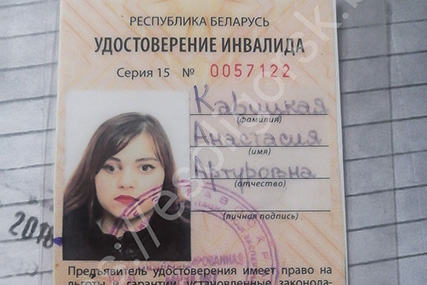 РЕСПУБЛИКА БЕЛАРУСЬ
УДОСТОВЕРЕНИЕ ИНВАЛИДА
Серия 15 № 0057122
Кавицкая
(фамилия)
Анастасия
(имя)
Артуровна
(отчество)
(личная подпись)
Предъявитель удостоверения имеет право на
льготы и гарантии, установленные законода-